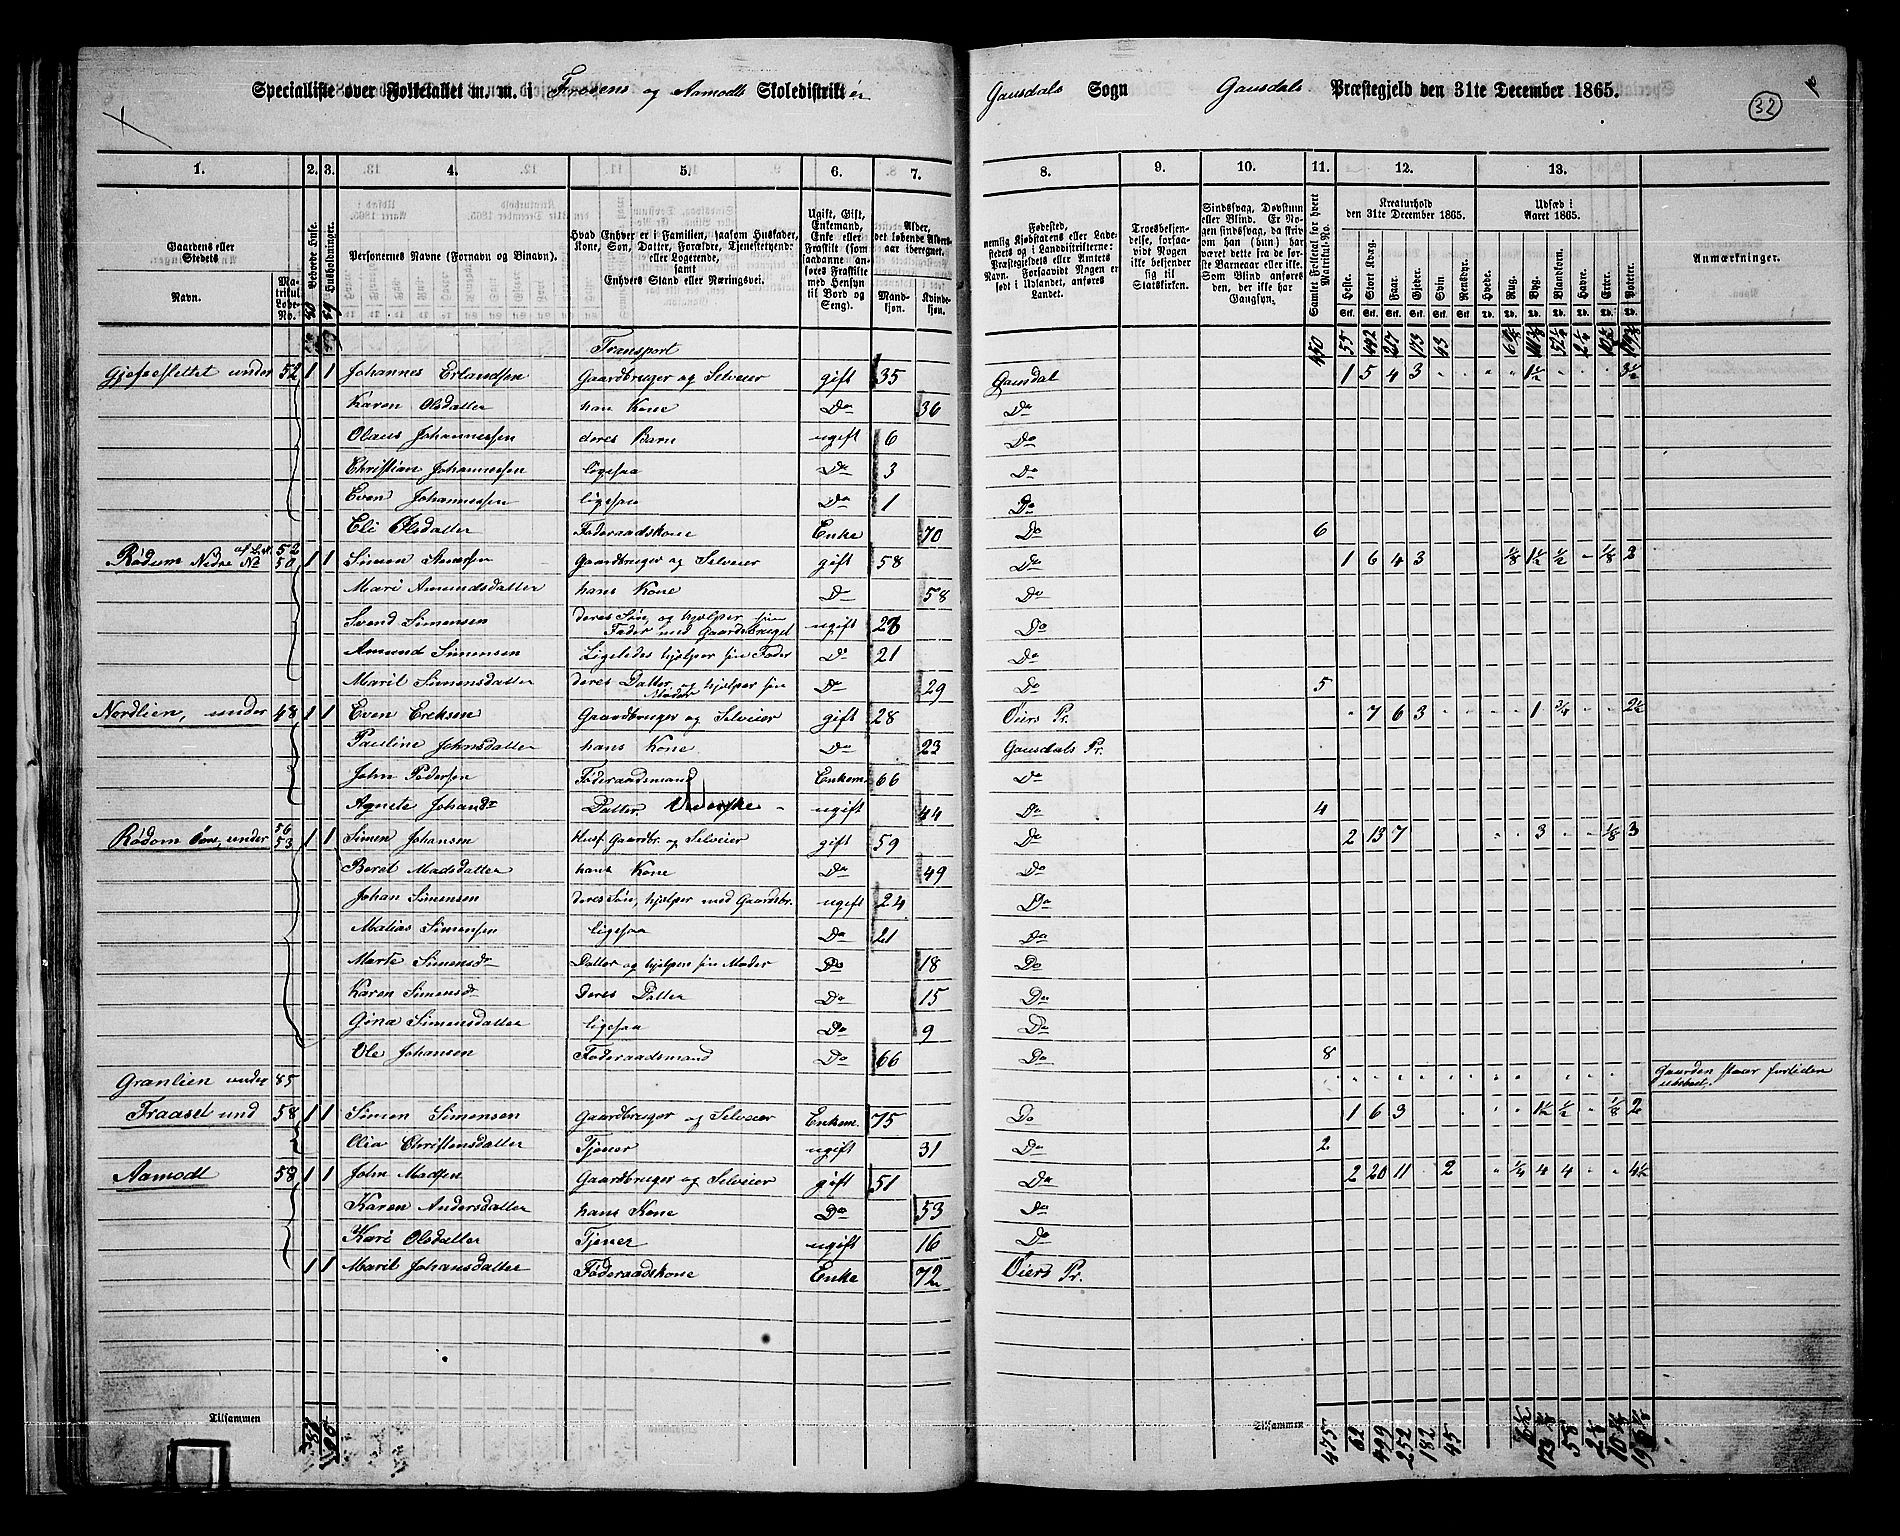 Specialliste over Folketallet m. m. i Frosens og Aamodts Skoledistrikter Gausdals Sogn Gausdals Præstegjeld den 31te December 1865.
32
1. 2. 3. 4. 5. 6. 7. 8. 9. 10. 11. 12. 13.
Gaardens eller Stedets Navn.
Matrikul Løbe-No.
Beboede Huse.
Husholdninger.
Personernes Navne (Fornavn og Binavn).
Hvad Enhver er i Familien, saasom Husfader, Kone, Søn, Datter, Forældre, Tjenestetyende eller Logerende, samt Enhvers Stand eller Næringsvei.
Ugift, Gift, Enkemand, Enke eller Fraskilt (som saadanne anføres Fraskilte med Hensyn til Bord og Seng).
Alder, det løbende Aldersaar iberegnet.
Mandkjøn. Kvindekjøn.
Fødested, nemlig Kjøbstadens eller Ladestedets og i Landdistrikterne: Præstegjeldets eller Amtets Navn. Forsaavidt Nogen er født i Udlandet, anføres Landet.
Troesbekjendelse, forsaavidt Nogen ikke bekjender sig til Statskirken.
Sindssvag, Døvstum eller Blind. Er Nogen sindssvag, da skrives om han (hun) har været dette fra de første Barneaar eller ikke. Som Blind anføres den, der ikke har Gangsyn.
Samlet Folketal for hvert Matrikul-No.
Kreaturhold den 31te December 1865.
Heste. Stort Kvæg. Faar. Gjeder. Svin. Rensdyr.
Udsæd i Aaret 1865.
Hvede. Rug. Byg. Blandkorn. Havre. Erter. Poteter.
Anmærkninger.
Transport 450
under 52 1 1 Johannes Erlandsen Gaardbruger og Selveier gift 35 Gausdal 1 5 4 3 1½ 3½
Karen Olsdatter hans Kone Do 36 Do
Olaus Johannessen deres Barn ugift 6 Do
Christian Johannessen ligesaa Do 3 Do
Even Johannessen ligesaa Do 1 Do
Eli Olsdatter Føderaadskone Enke 70 Do 6
Rødum Nedre 52 50 1 1 Simen Gaardbruger og Selveier gift 58 Do 1 6 4 3 ⅛ 1½ ½ ⅛ 2
Mari Amundsdatter hans Kone Do 58 Do
Svend Simensen deres Søn, og hjelper sin Fader med Gaardsbruget ugift 28 Do
Amund Simensen Ligeledes hjelper sin Fader Do 21 Do
Marit Simensdatter deres Datter, og hjelper sin Moder Do 29 Do 5
Nordlien, under 48 1 1 Even Ereksen Gaardbruger og Selveier gift 28 Øiers Pr. 7 6 3 1 ¾ 2½
Pauline Johnsdatter hans Kone Do 23 Gausdals Pr.
John Pedersen Føderaadsmand Enkem. 66 Do
Agnete Johansdr Datter ugift 44 Do 4
Rødom øvre, under 56 53 1 1 Simen Johansen Husf. Gaardbr. og Selveier gift 59 Do 2 13 7 3 ⅛ 3
Beret Madsdatter hans Kone Do 49 Do
Johan Simensen deres Søn, hjelper med Gaardsbr. ugift 24 Do
Matias Simensen ligesaa Do 21 Do
Marte Simensdr Datter og hjelper sin Moder Do 18 Do
Karen Simensdr Deres Datter Do 15 Do
Gina Simensdatter ligesaa Do 9 Do
Ole Johansen Føderaadsmand Do 66 Do 8
Granlien under 85 Gaarden staar fortiden ubeboet.
Fraaset und 58 1 1 Simon Simensen Gaardbruger og Selveier Enkem. 75 Do 1 6 3 1½ ½ ⅛ 2
Olia Christensdatter Tjener ugift 31 Do 2
Aamodt 58 1 1 John Madsen Gaardbruger og Selveier gift 51 Do 2 20 11 2 ¼ 4 4 4½
Karen Andersdatter hans Kone Do 53 Do
Kari Olsdatter Tjener ugift 16 Do
1 1 Marit Johansdatter Føderaadskone Enke 72 Øiers Pr.
Tilsammen Tilsammen 475 62 499 252 182 45